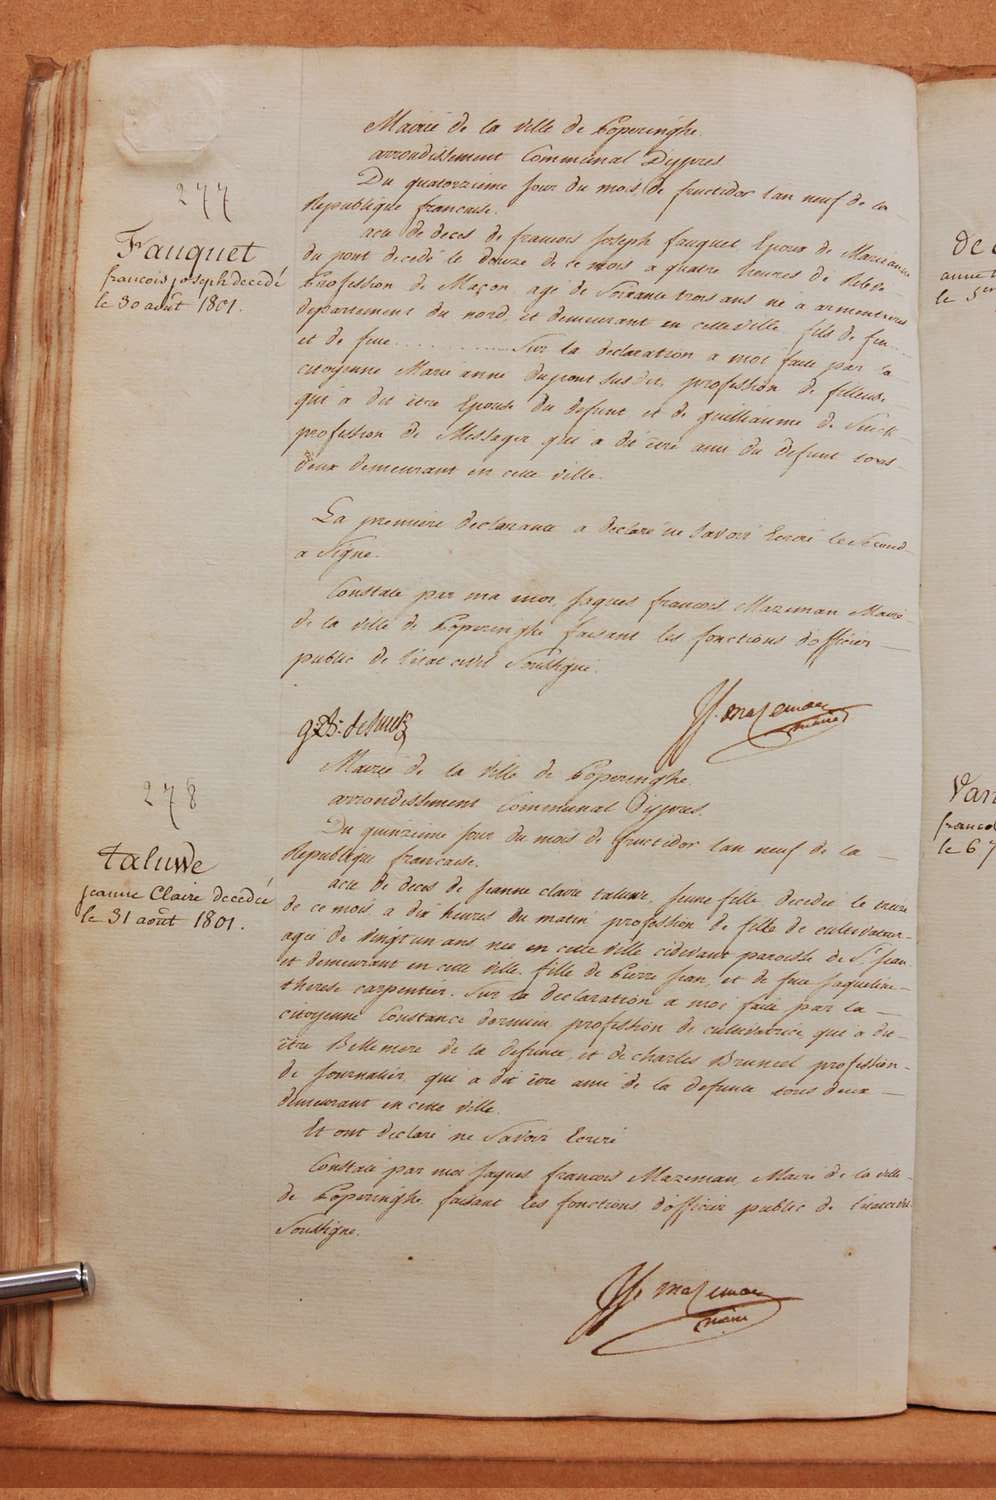 277
Fauquet
francois joseph decedé
le 30 août 1801.
Mairie de la ville de Poperinghe.
arrondissement Communal Dijpres
Du quatorzieme jour du mois de fructidor lan neuf de la
Republique francaise.
acte de deces de francois Joseph fauquet Epoux de Marie anne
du pont decedé le douze de ce mois a quatre heures de
Profession de Maçon, agé de Soixante trois ans né a armentieres
departement du nord, et demeurant en cette ville fils de feu
et de feue ............... Sur la declaration a moi faite par la
citoyenne Marie anne dupont susdite, profession de fileuse
qui a dit être Epouse du defunt et de guilliaume de Suick
profession de Messager qui a dit être ami du defunt tous
deux demeurant en cette ville.
La premiere declarante a declaré ne savoir Ecrire le Second
a Signe.
Constaté par ma moi, Jaques francois Mazeman Maire
de la ville de Poperinghe faisant les fonctions d'officier
public de l'etat civil Soussigné.
J. f. mazeman
maire
278
taluwe
jeanne Claire decedée
le 31 août 1801.
Mairie de la ville de Poperinghe.
arrondissement Communal Dijpres.
Du quinzieme jour du mois de fructidor lan neuf de la
Republique francaise.
acte de deces de Jeanne claire taluwe, Jeune fille decedée le treize
de ce mois, a dix heures du matin profession de fille de cultivateur
agée de vingt un ans née en cette ville cidevant paroisse de St. Jean
et demeurant en cette ville, fille de Pierre Jean, et de feue Jaqueline
therese carpentier. Sur la declaration a moi faite par la
citoyenne Constance profession de cultivatrice, qui a dit
être Belle mere de la defunte, et de charles Bruneel profession
de Journalier, qui a dit être ami de la defunte tous deux
demeurant en cette ville.
Et ont declaré ne Savoir Ecrire
Constaté par moi Jaques francois Mazeman, Maire de la ville
de Poperinghe, faisant les fonctions d'officier public de l'etat civil
Soussigne.
J. f. mazeman
maire